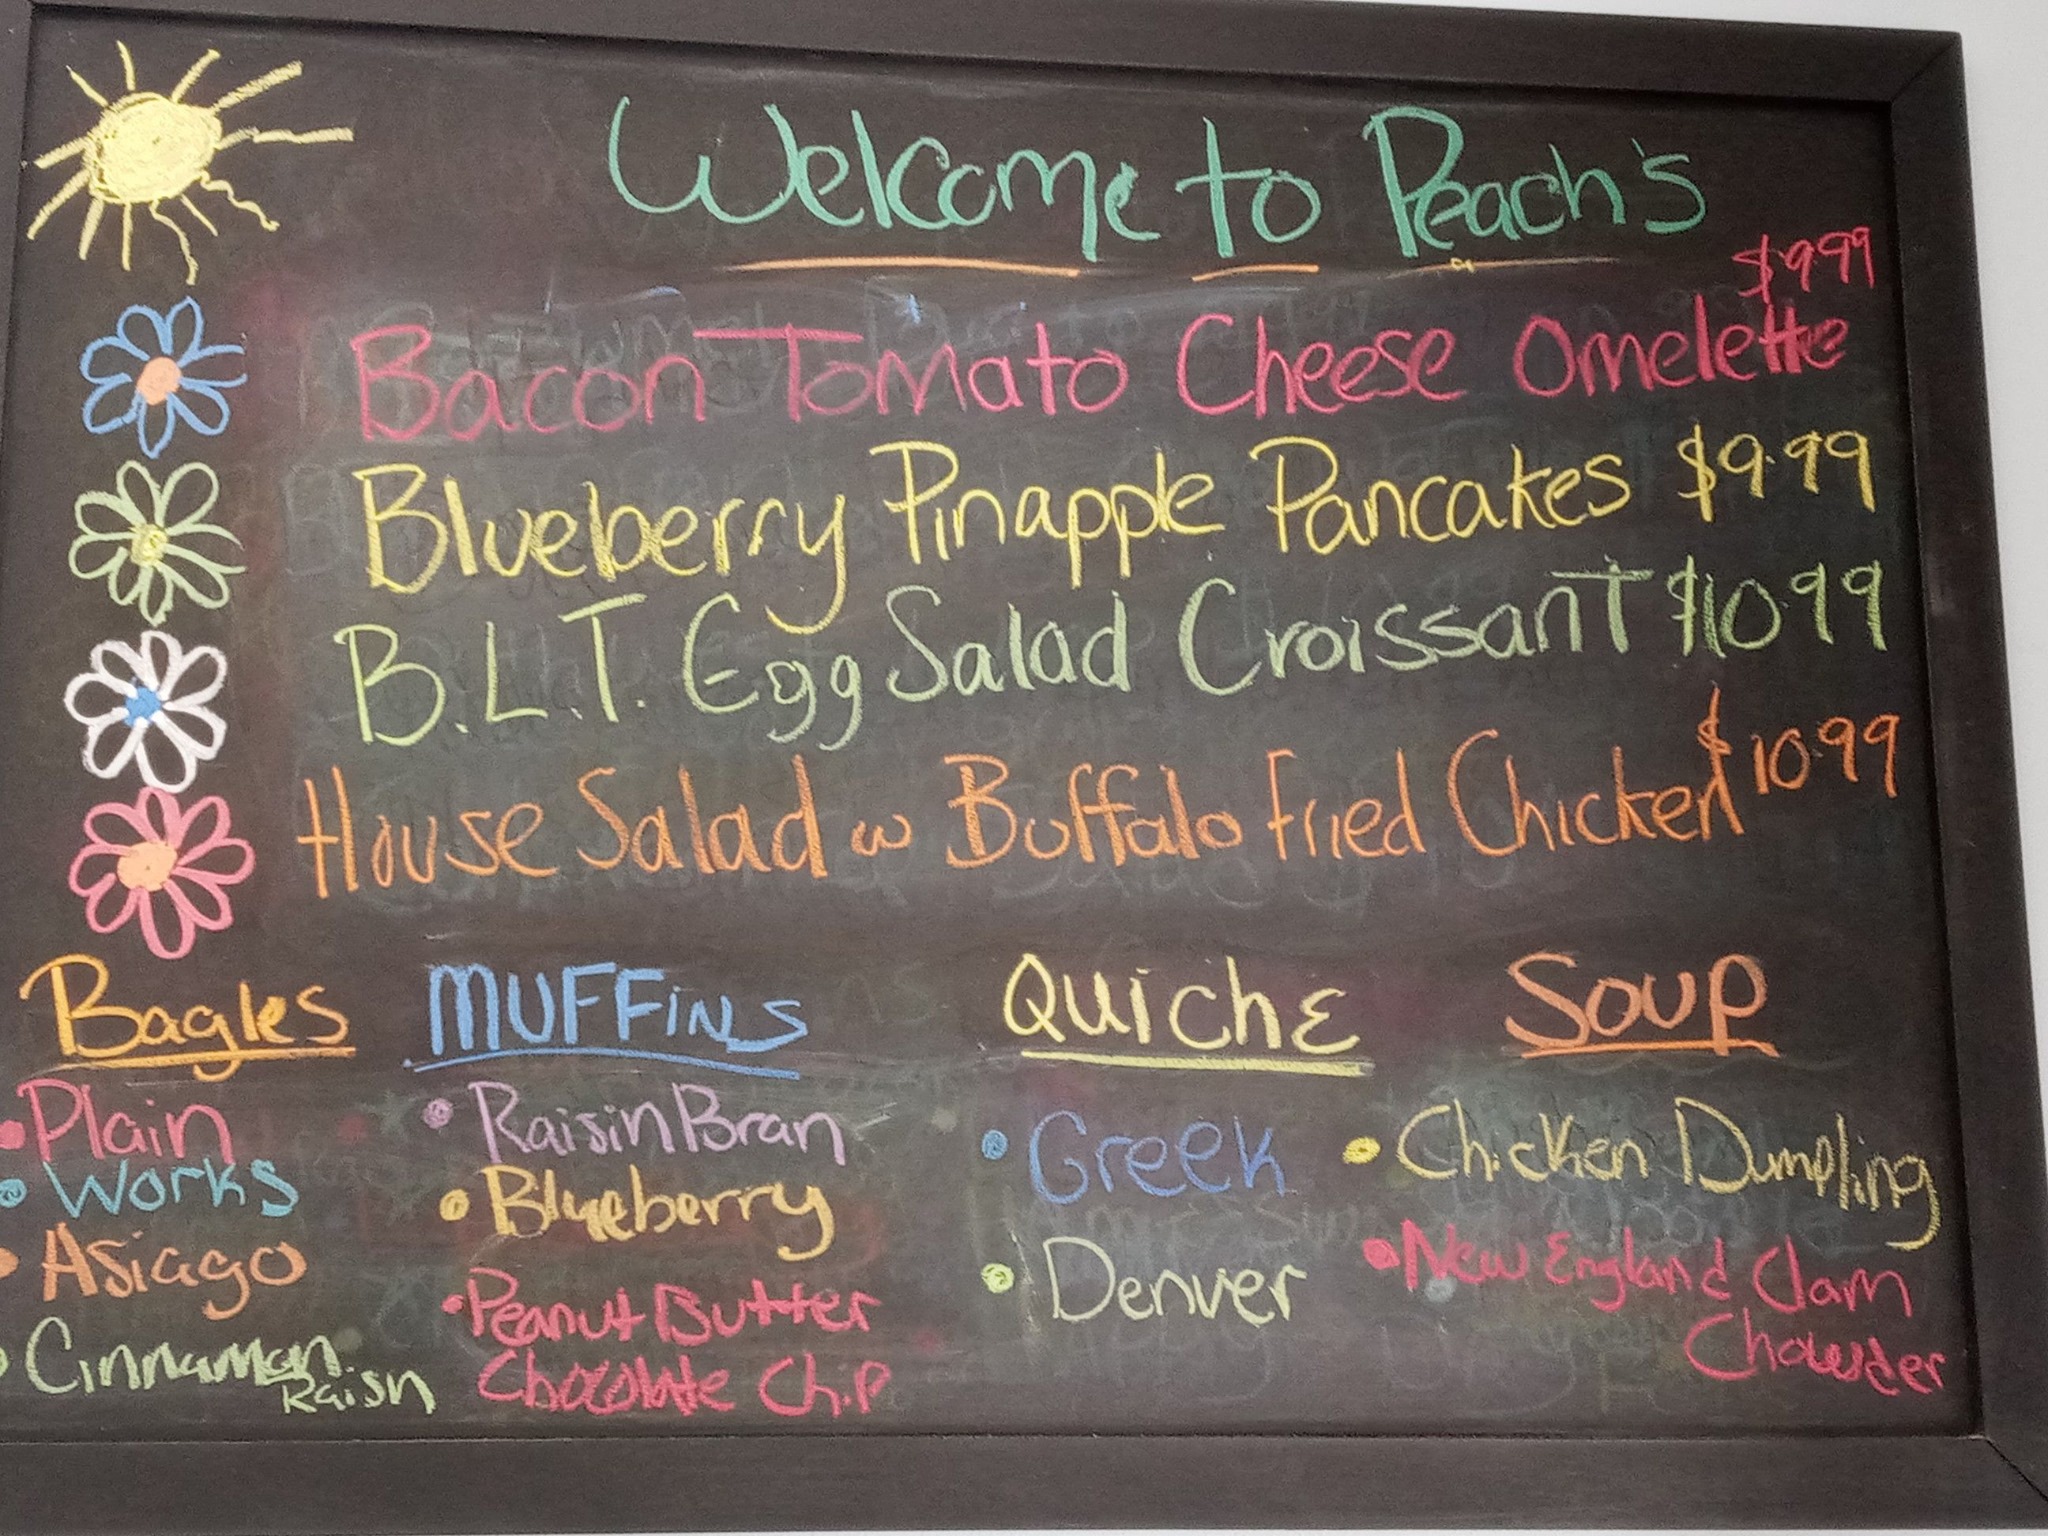 Welcome to Peach's
$9.99
Bacon Tomato Cheese Omelette
Blueberry Pinapple Pancakes $9.99
B.L.T. Egg Salad Croissant $10.99
House Salad w Buffalo Fried Chicken $10.99
Bagles
Plain
Works
Asiago
Cinnaman
Raisn
MUFFiNS
Raisin Bran
Blueberry
Peanut Butter
Chocolate Chip
QUichE
Greek
Denver
Soup
Chicken Dumpling
New England Clam
Chowder